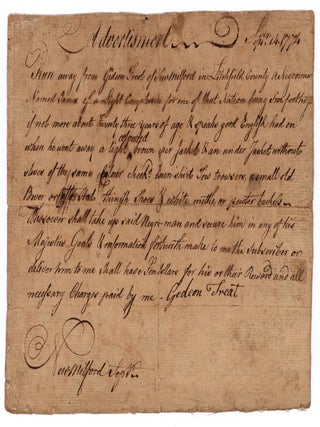 Advertisment Sept. 14. 1774
Run away from Gideon Treat of New Milford in Litchfield County a Negroman
Named of a Light Complexion for one of that Nation being
if not more about Twenty three years of age & speaks good English had on
coloured
when he went away a light brown Jacket & an under Jacket without
sleves of the same check linen shirt Tow trowsers, a small old
Bever or Hat Shoes & white buckles
Whosoever shall take up said Negro-man and secure him in any of his
Majesties Goals & information forthwith make to me the Subscriber or
deliver him to me Shall have Ten dollars for his or their Reward and all
necessary Charges paid by me - Gedeon Treat
New Milford Septr.